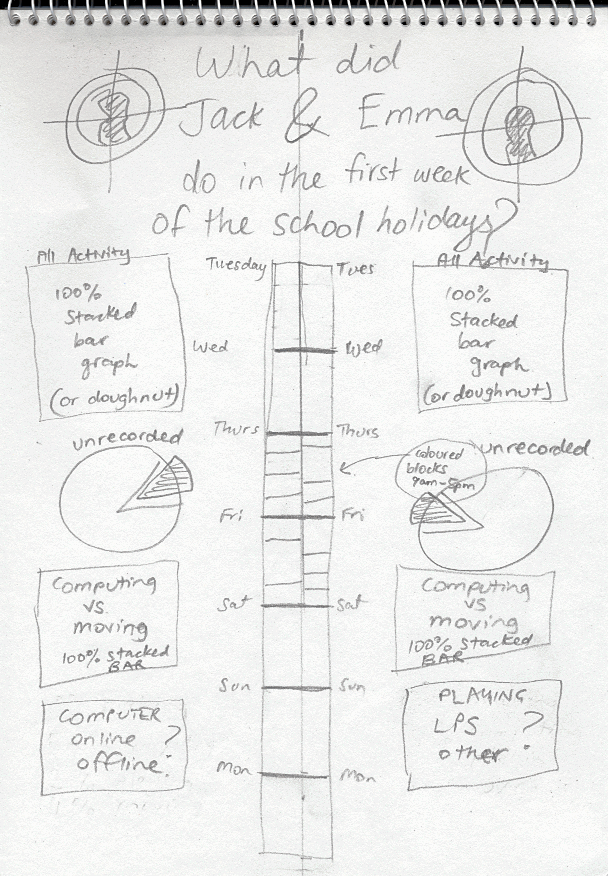 What did
Jack & Emma
do in the first week
of the school holidays?
All Activity
100%
Stacked
bar
graph
(or doughnut)
Tuesday
Tues
All Activity
100%
Stacked
bar
graph
(or doughnut)
Wed
Wed
Thurs
Thurs
unrecorded
coloured
blocks
9am-5pm
unrecorded
Fri
Fri
Computing
vs
moving
100% Stacked
BAR
Sat
Sat
Computing
vs
moving
100% Stacked
BAR
Sun
Sun
COMPUTER
online ?
offline.
PLAYING
LPS ?
other
Mon
Mon